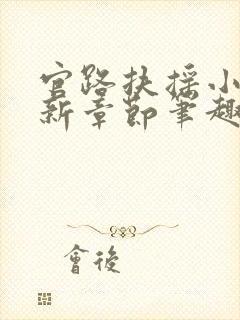 官路扶摇小
新章節筆趣
會後